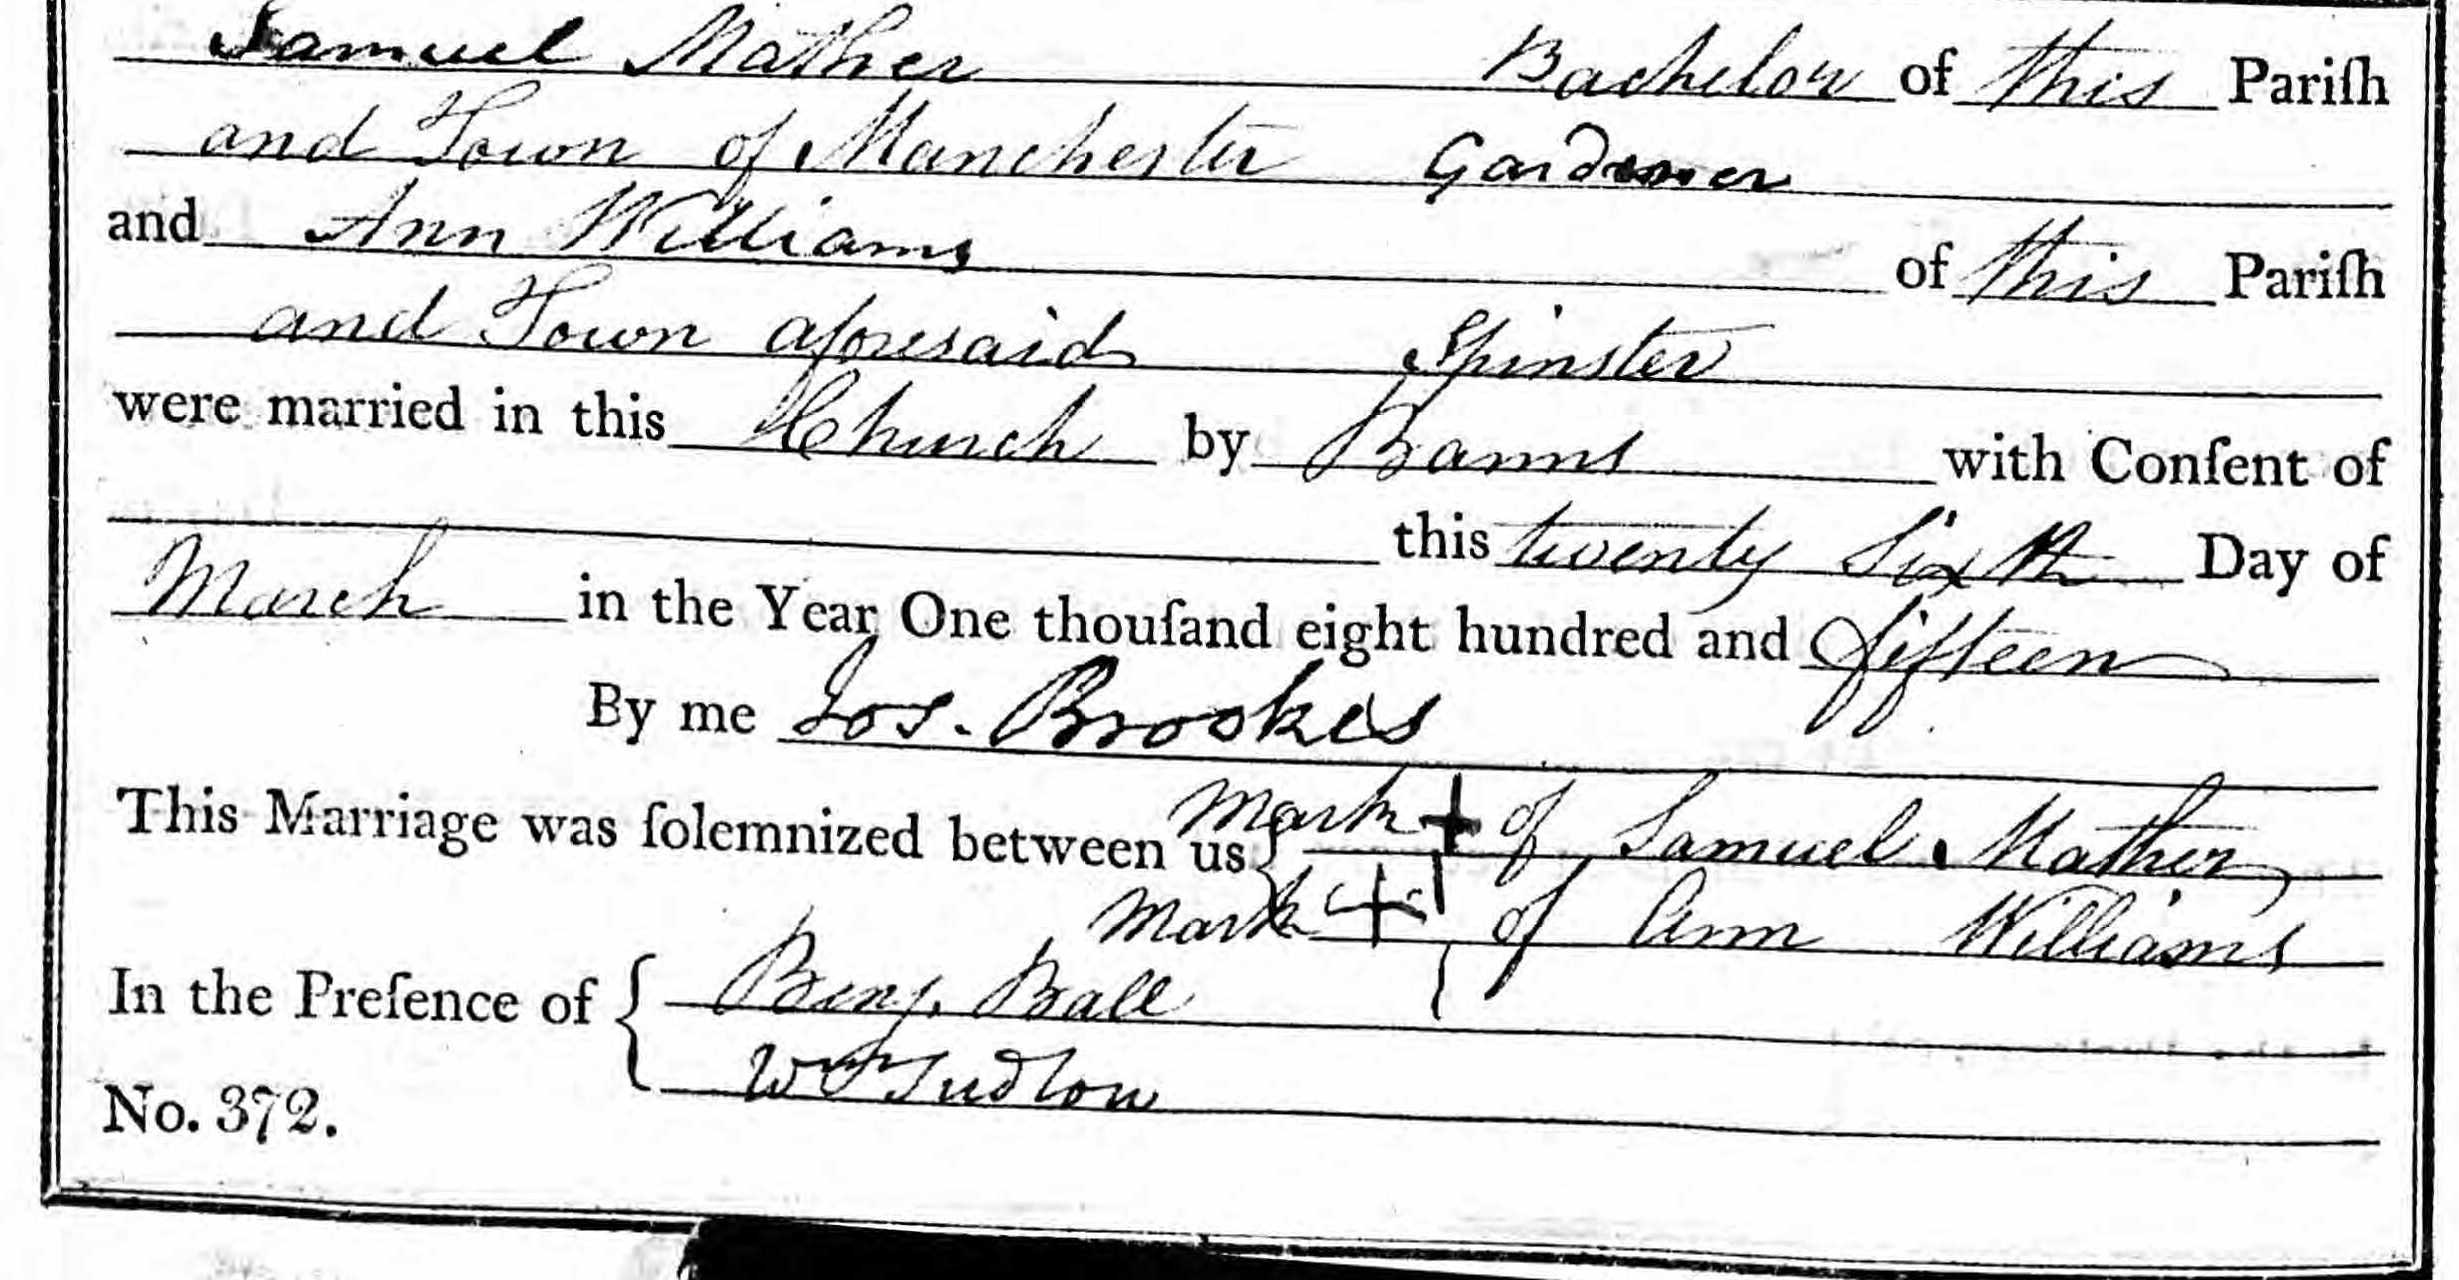 Samuel Mather Bachelor of this Pariſh
and Town of Manchester Gardener
and Ann Williams of this Pariſh
and Town aforesaid Spinster
were married in this Church by Banns with Conſent of
this twenty Sixth Day of
March in the Year One thouſand eight hundred and fifteen
By me Jos. Brookes
This Marriage was ſolemnized between us Mark + of Samuel Mather
Mark + of Ann Williams
In the Preſence of Benj. Ball
Wm Sudlow
No. 372.